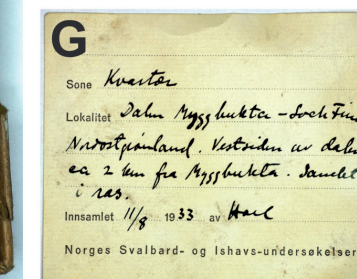 G
Sone Kvartær
Lokalitet Dalen Myggbukta - Loch Fin
Nordostgrønland. Vestsiden av dalen
ca 2 km fra Myggbukta. Samlet
i ras.
Innsamlet 11/8 1933 av Hoel
Norges Svalbard- og Ishavs-undersøkelser